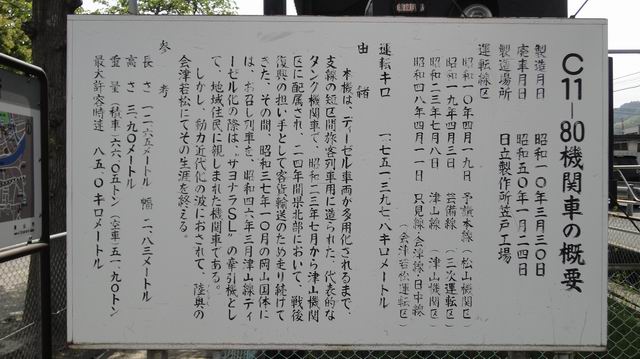 C11-80機関車の概要
製造月日 昭和一〇年三月三〇日
廃車月日 昭和五〇年一月二四日
製造場所 日立製作所笠戸工場
運転線区
昭和一〇年四月一九日 予讃本線(松山機関区)
昭和一九年四月三日 芸備線(三次運転区)
昭和二三年七月八日 津山線(津山機関区)
昭和四八年四月一一日 只見線・会津線・日中線
(会津若松運転区)
運転キロ 一、七五一、三九七、八キロメートル
由緒
本機は、ディーゼル車両が多用化されるまで、
支線の短区間旅客列車用に造られた、代表的な
タンク機関車で、昭和二三年七月から津山機関
区に配属され、二四年間県北部において、戦後
復興の担い手として客貨輸送のため走り続けて
きた。その間、昭和三七年一〇月の岡山国体に
は、お召し列車を、昭和四六年三月津山線ディ
ーゼル化の際は、サヨナラSL、の牽引機とし
て、地域住民に親しまれた機関車である。
しかし、動力近代化の波におされて、陸奥の
会津若松にてその生涯を終える。
参考
長さ 一二、六五メートル 幅 二、八三メートル
高さ 三、九〇メートル
重量(積車)六六、〇五トン(空車)五一、九〇トン
最大許容時速 八五、〇キロメートル